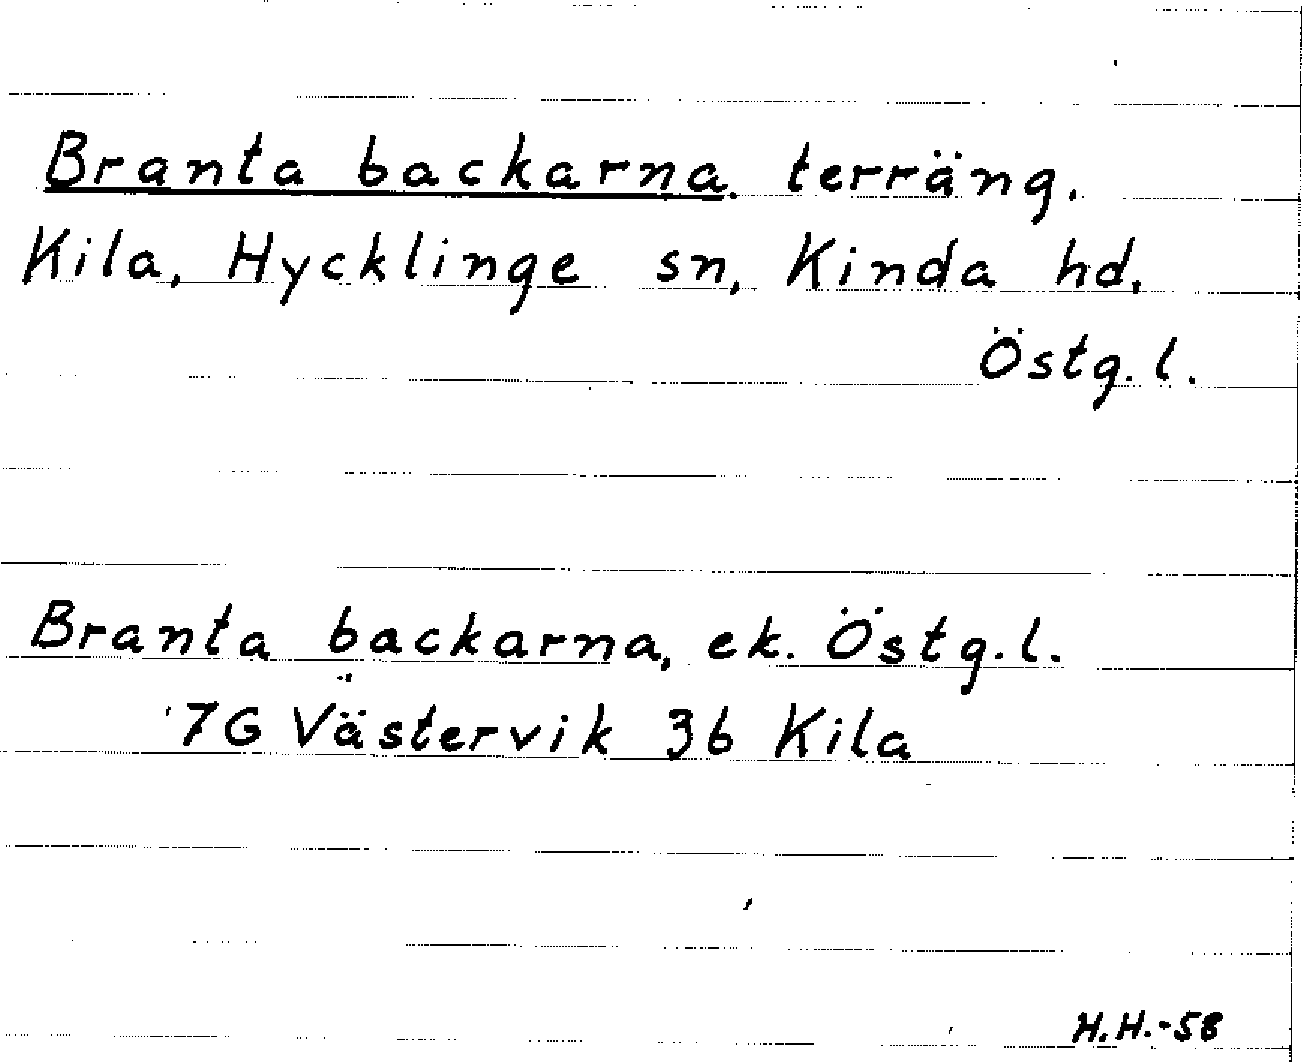 Branta backarna. terräng.
Kila, Hycklinge sn, Kinda hd,
Östg. l.
Branta backarna, ek. Östg. l.
7G Västervik 3b Kila
H.H.-58